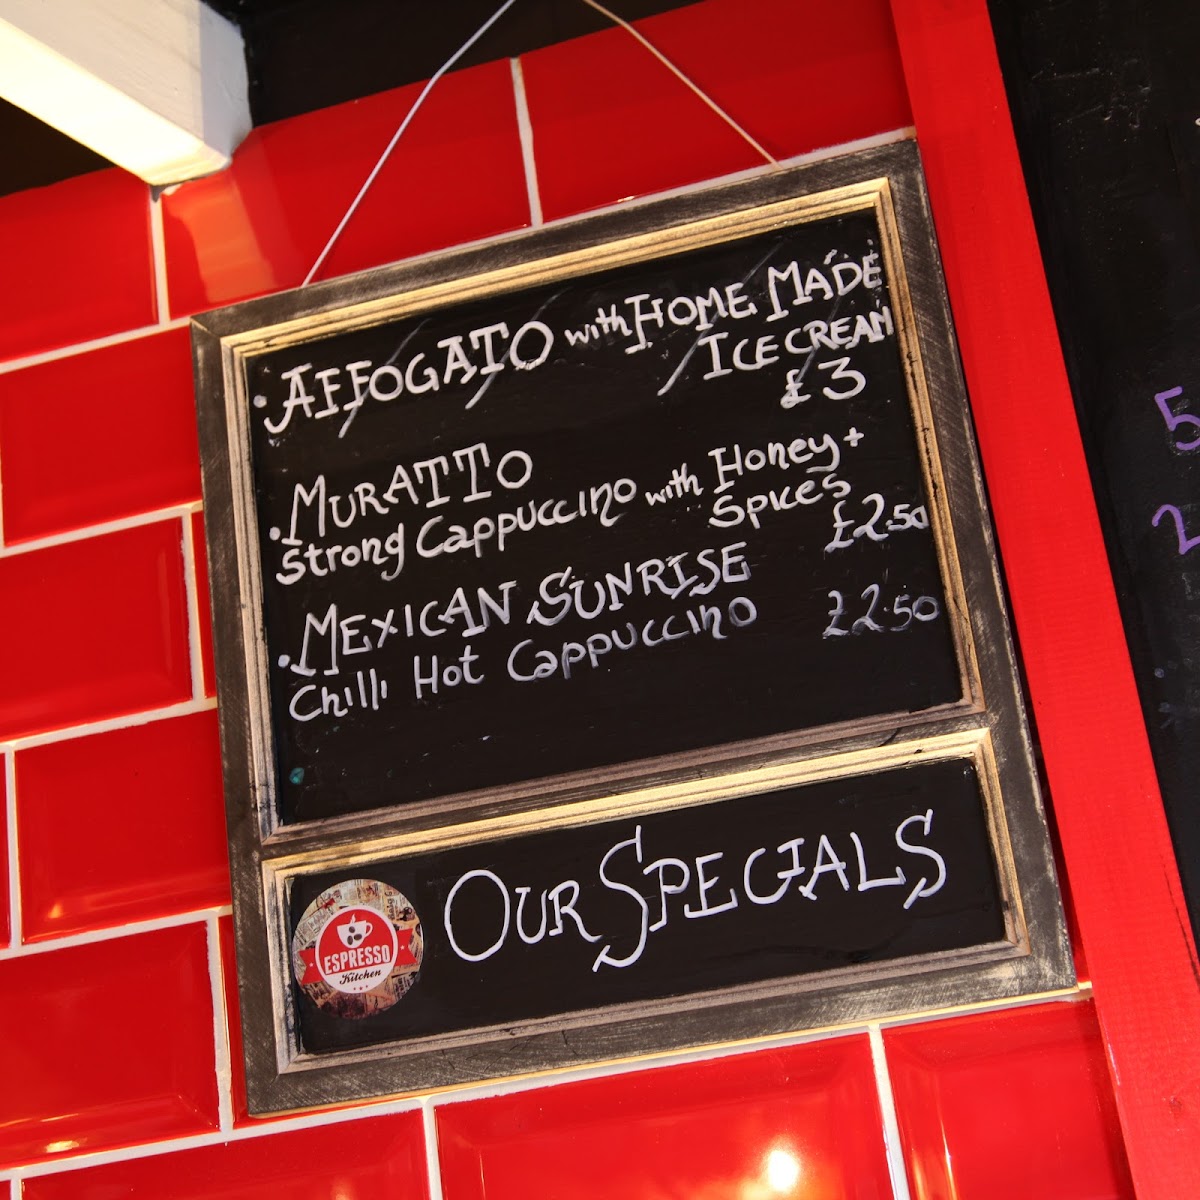 • AFFOGATO with HOME MADE
ICE CREAM
£3
• MURATTO
Strong Cappuccino with Honey +
Spices
£2.50
• MEXICAN SUNRISE
Chilli Hot Cappuccino £2.50
OUR SPECIALS
ESPRESSO
Kitchen
5
2